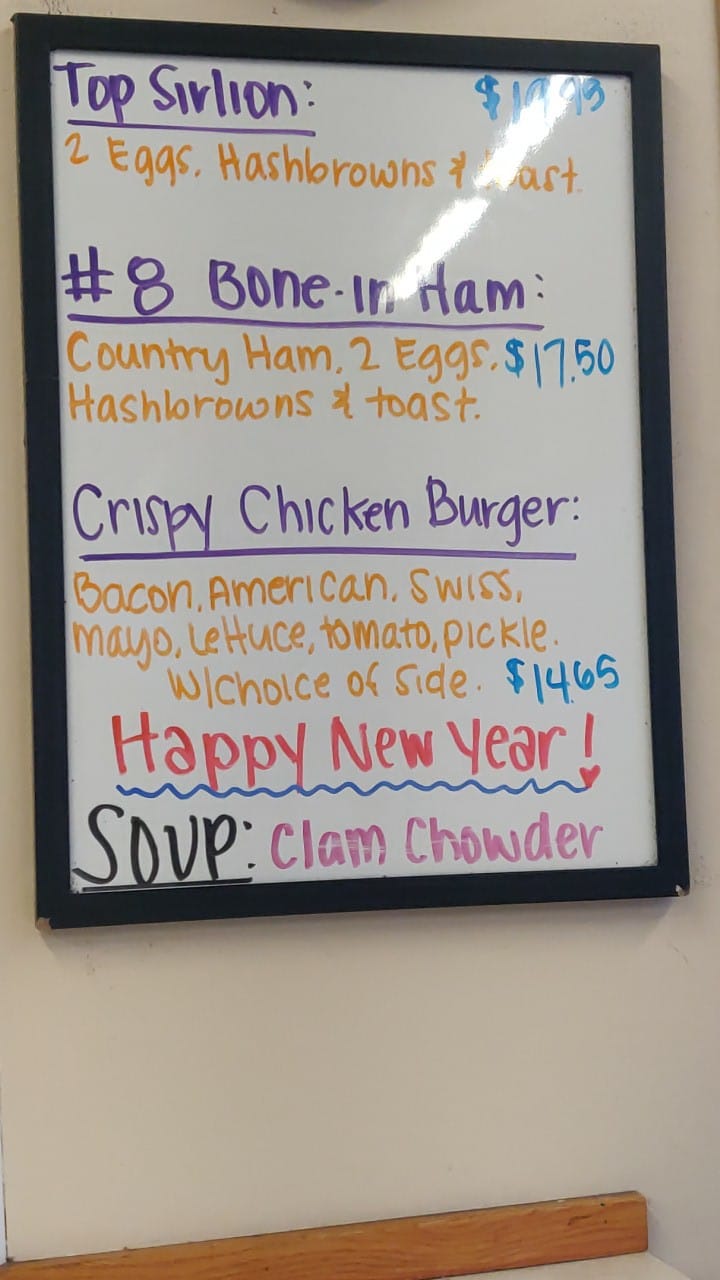 Top Sirlion:
2 Eggs, Hashbrowns & toast.
#8 Bone-In Ham:
Country Ham, 2 Eggs, $17.50
Hashbrowns & toast.
Crispy Chicken Burger:
Bacon, American, Swiss,
mayo, Lettuce, tomato, pickle.
W/choice of side. $14.65
Happy New Year!
SOUP: Clam Chowder